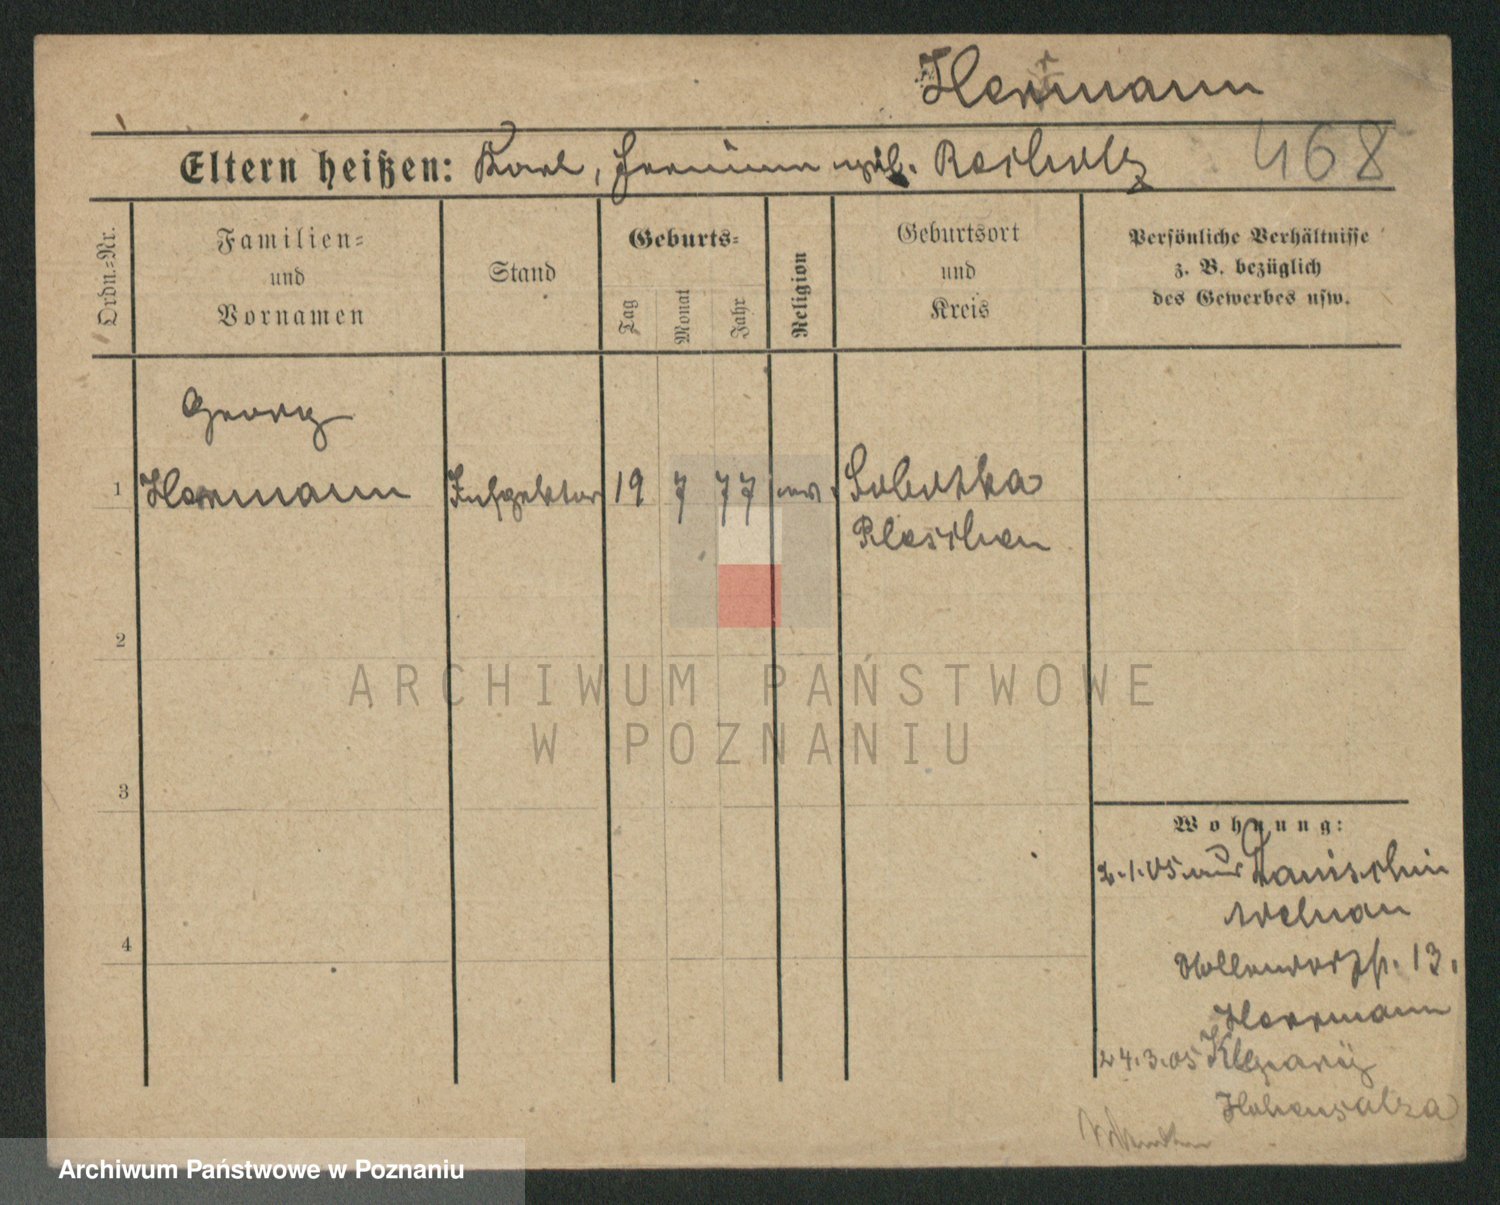 Herrmann
Eltern heißen: Karl, Hermine geb. Reicholz 468
Ordn.=Nr.
Familien=
und
Vornamen
Stand
Geburts=
Tag
Monat
Jahr
Religion
Geburtsort
und
Kreis
Persönliche Verhältnisse
z. B. bezüglich
des Gewerbes usw.
Georg
1 Herrmann Inspektor 19 7 77 ev. Sobotka
Pleschen
2
3
4
Wohnung:
2.1.05 aus
13.
Herrmann
24.3.05
Hohensalza
ARCHIWUM PAŃSTWOWE
W POZNANIU
Archiwum Państwowe w Poznaniu